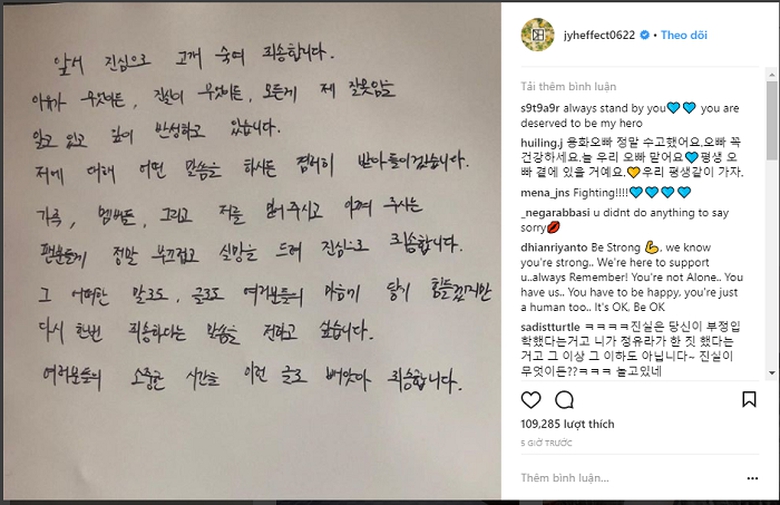 앞서 진심으로 고개 숙여 죄송합니다.
이유가 무엇이든, 진실이 무엇이든, 모든게 제 잘못임을
알고 있고 깊이 반성하고 있습니다.
저에 대해 어떤 말씀을 하시든 겸허히 받아들이겠습니다.
가족, 멤버들, 그리고 저를 믿어주시고 아껴 주시는
팬분들께 정말 부끄럽고 실망을 드려 진심으로 죄송합니다.
그 어떠한 말로도, 글로도 여러분들의 마음에 닿기 힘들겠지만
다시 한번 죄송하다는 말씀을 전하고 싶습니다.
여러분들의 소중한 시간을 이런 글로 빼앗아 죄송합니다.
jyheffect0622 • Theo dõi
Tải thêm bình luận
s9t9a9r always stand by you💙💙 you are
deserved to be my hero
huiling.j 용화오빠 정말 수고했어요.오빠 꼭
건강하세요.늘 우리 오빠 맡어요💙평생 오
빠 곁에 있을 거예요.💛우리 평생같이 가자.
mena_jns Fighting!!!!💙💙💙💙
_negarabbasi u didnt do anything to say
sorry💋
dhianriyanto Be Strong 💪, we know
you're strong.. We're here to support
u..always Remember! You're not Alone.. You
have us.. You have to be happy, you're just
a human too.. It's OK, Be OK
sadistturtle ㅋㅋㅋㅋ진실은 당신이 부정입
학했다는거고 니가 정유라가 한 짓 했다는
거고 그 이상 그 이하도 아닙니다~ 진실이
무엇이든??ㅋㅋㅋ 놀고있네
109,285 lượt thích
5 GIỜ TRƯỚC
Thêm bình luận...